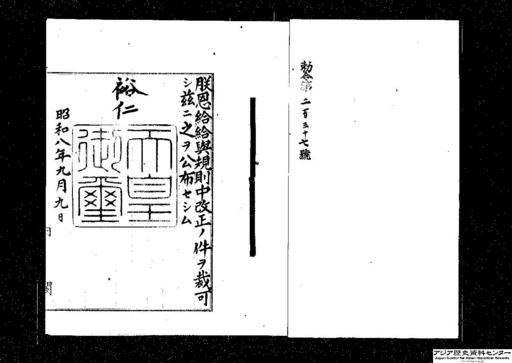 勅令第二百三十七號
朕恩給給與規則中改正ノ件ヲ裁可
シ茲ニ之ヲ公布セシム
裕仁
天皇御璽
昭和八年九月九日
内
閣
アジア歴史資料センター
Japan Center for Asian Historical Records